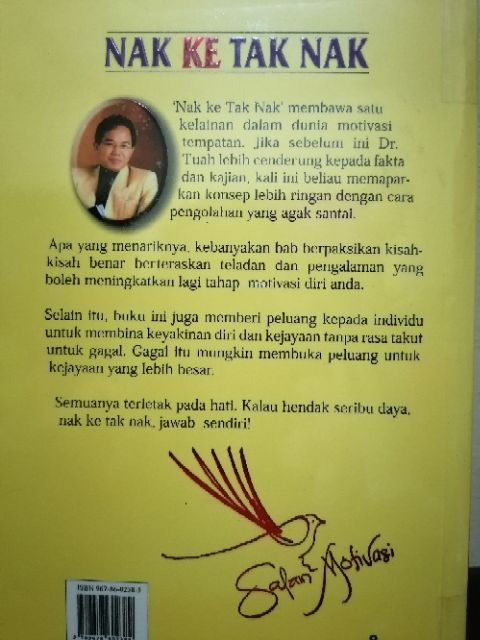 NAK KE TAK NAK
'Nak ke Tak Nak' membawa satu
kelainan dalam dunia motivasi
tempatan. Jika sebelum ini Dr.
Tuah lebih cenderung kepada fakta
dan kajian, kali ini beliau memapar-
kan konsep lebih ringan dengan cara
pengolahan yang agak santai.
Apa yang menariknya, kebanyakan bab berpaksikan kisah-
kisah benar berteraskan teladan dan pengalaman yang
boleh meningkatkan lagi tahap motivasi diri anda.
Selain itu, buku ini juga memberi peluang kepada individu
untuk membina keyakinan diri dan kejayaan tanpa rasa takut
untuk gagal. Gagal itu mungkin membuka peluang untuk
kejayaan yang lebih besar.
Semuanya terletak pada hati. Kalau hendak seribu daya,
nak ke tak nak, jawab sendiri!
Safari Motivasi